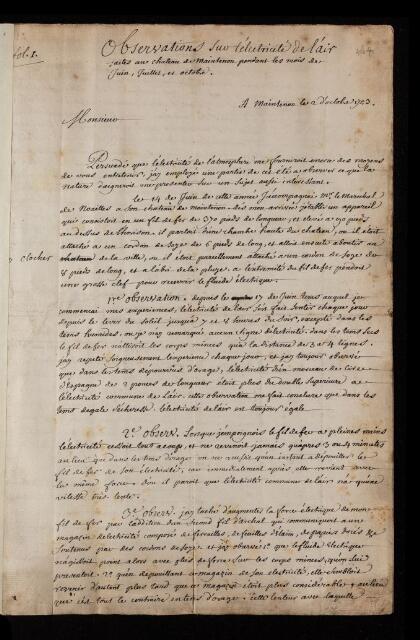 fol. 1.
Observations sur l'électricité de l'air
faites au chateau de maintenon pendant les mois de
Juin, Juillet, et octobre.
A maintenon le 2 d'octobre 1753.
Monsieur
Persuadé que l'electricité de l'atmosphere me fourniroit encore des moyens
de vous entretenir, j'ay employé une partie de cet été a observer ce que la
nature daigneroit me presenter sur un sujet aussi interessant.
Le 14 de Juin de cette année J'accompagnai Mr. le Marechal
de Noailles a son chateau de maintenon dès mon arrivée j'établis un appareil
qui consistoit en un fil de fer de 370 pieds de longueur, et élevé a 90 pieds
au dessus de l'horison. il partoit d'une chambre haute du chateau, ou il etoit
attaché a un cordon de soye de 6 pieds de long, et alloit ensuite aboutir au
clocher
de la ville, ou il étoit pareillement attaché a un cordon de soye de
8 pieds de long, et a l'abri de la pluye. a l'extremité du fil de fer pendoit
une grosse clef pour recevoir le fluide électrique.
1re observation, depuis le 17 de Juin tems auquel j'ai
commencé mes experiences, l'electricité de l'air s'est fait sentir chaque jour
depuis le lever du soleil jusqu'a 7 et 8 heures du soir, excepté dans les
tems humides, ou je n'ay remarqué aucun signe d'electricité. dans les tems secs
le fil de fer n'attiroit les corps minces qu'a la distance de 3 a 4 lignes.
j'ay repeté soigneusement l'experience chaque jour, et j'ay toujours observé
que dans les tems depourvus d'orage, l'electricité d'un morceau de cire
d'Espagne de 2 pouces de longueur étoit plus du double superieure a
l'electricité commune de l'air. cette observation me fait conclure que dans les
tems d'egale secheresse l'electricité de l'air est toujours égale.
2e observ. Lorsque j'empoignois le fil de fer a pleines mains
l'electricité cessoit tout a coup, et ne revenoit jamais qu'apres 3 ou 4 minutes
au lieu que dans les tems d'orage on ne reussit qu'un instant a depouiller le
fil de fer de son électricité, car immediatement après elle revient avec
la même force. d'ou il paroit que l'electricité commune de l'air n'a qu'une
vitesse très lente.
3e observ. j'ay taché d'augmenter la force électrique de mon
fil de fer par l'addition d'un second fil d'archal qui communiquoit a un
magazin d'electricité composé de ferrailles, de feuilles d'étain, de papiers dorés &c
soutenus par des cordons de soye. et j'ay observé 1° que le fluide électrique
n'agissoit point alors avec plus de force sur les corps minces, qu'on lui
presentoit. 2° qu'en depouillant ce magazin de son electricité, elle sembloit
revenir d'autant plus tard que ce magazin étoit plus considerable, au lieu
que c'est tout le contraire en tems d'orage. cette lenteur avec laquelle